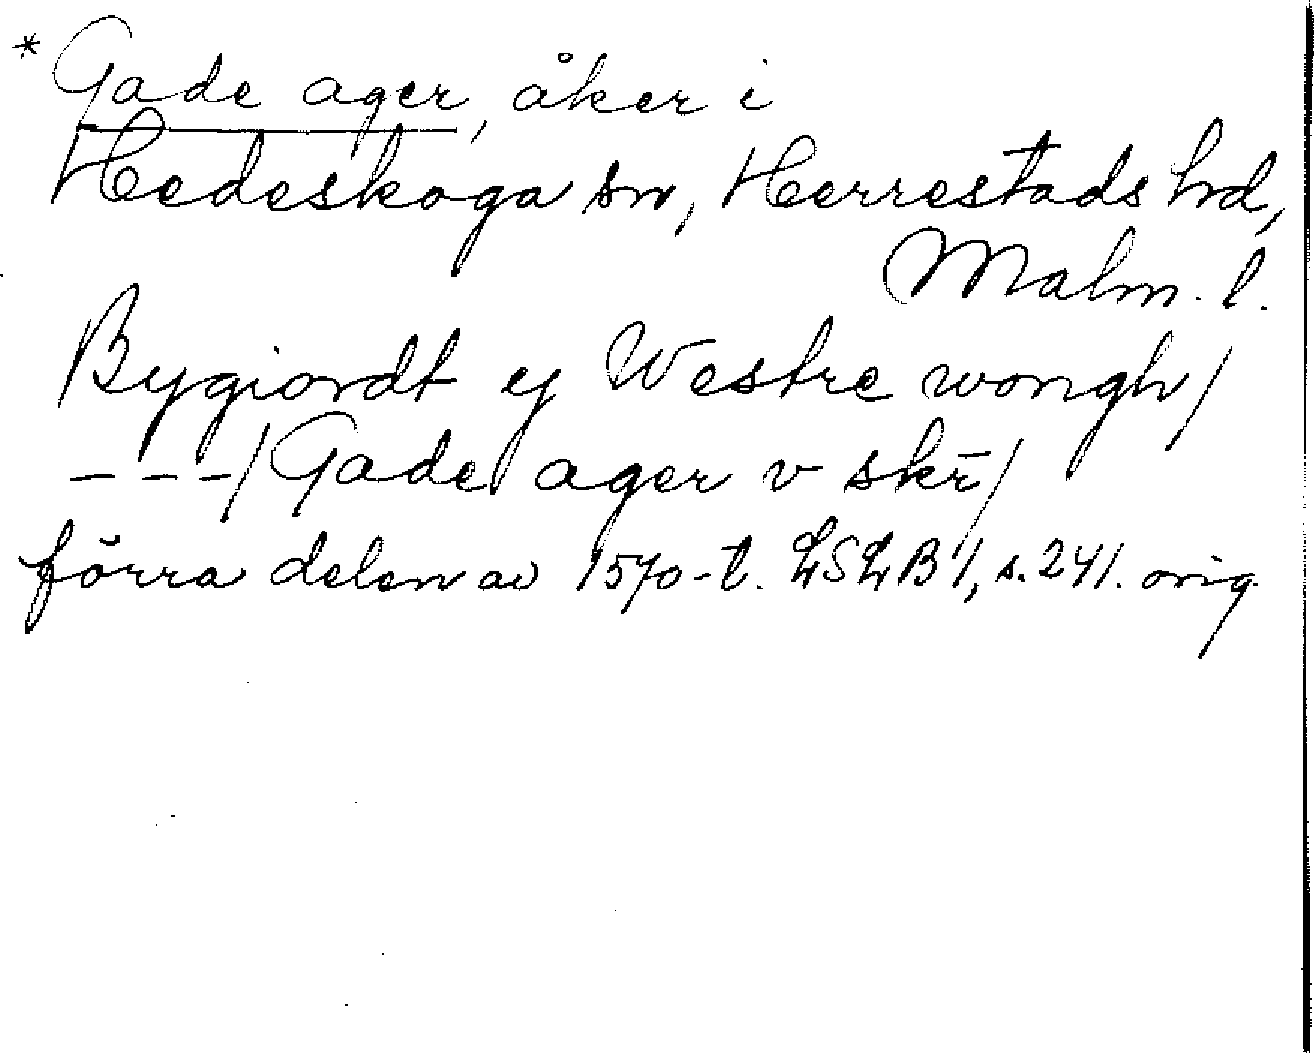 * Gade ager, åker i
Hedeskoga sn, Herrestads hd,
Malm. l.
Bygiordt ij Westre wongh/
- - -/Gade ager v skr̄/
förra delen av 1570-t. LSLB 1, s. 241. orig.